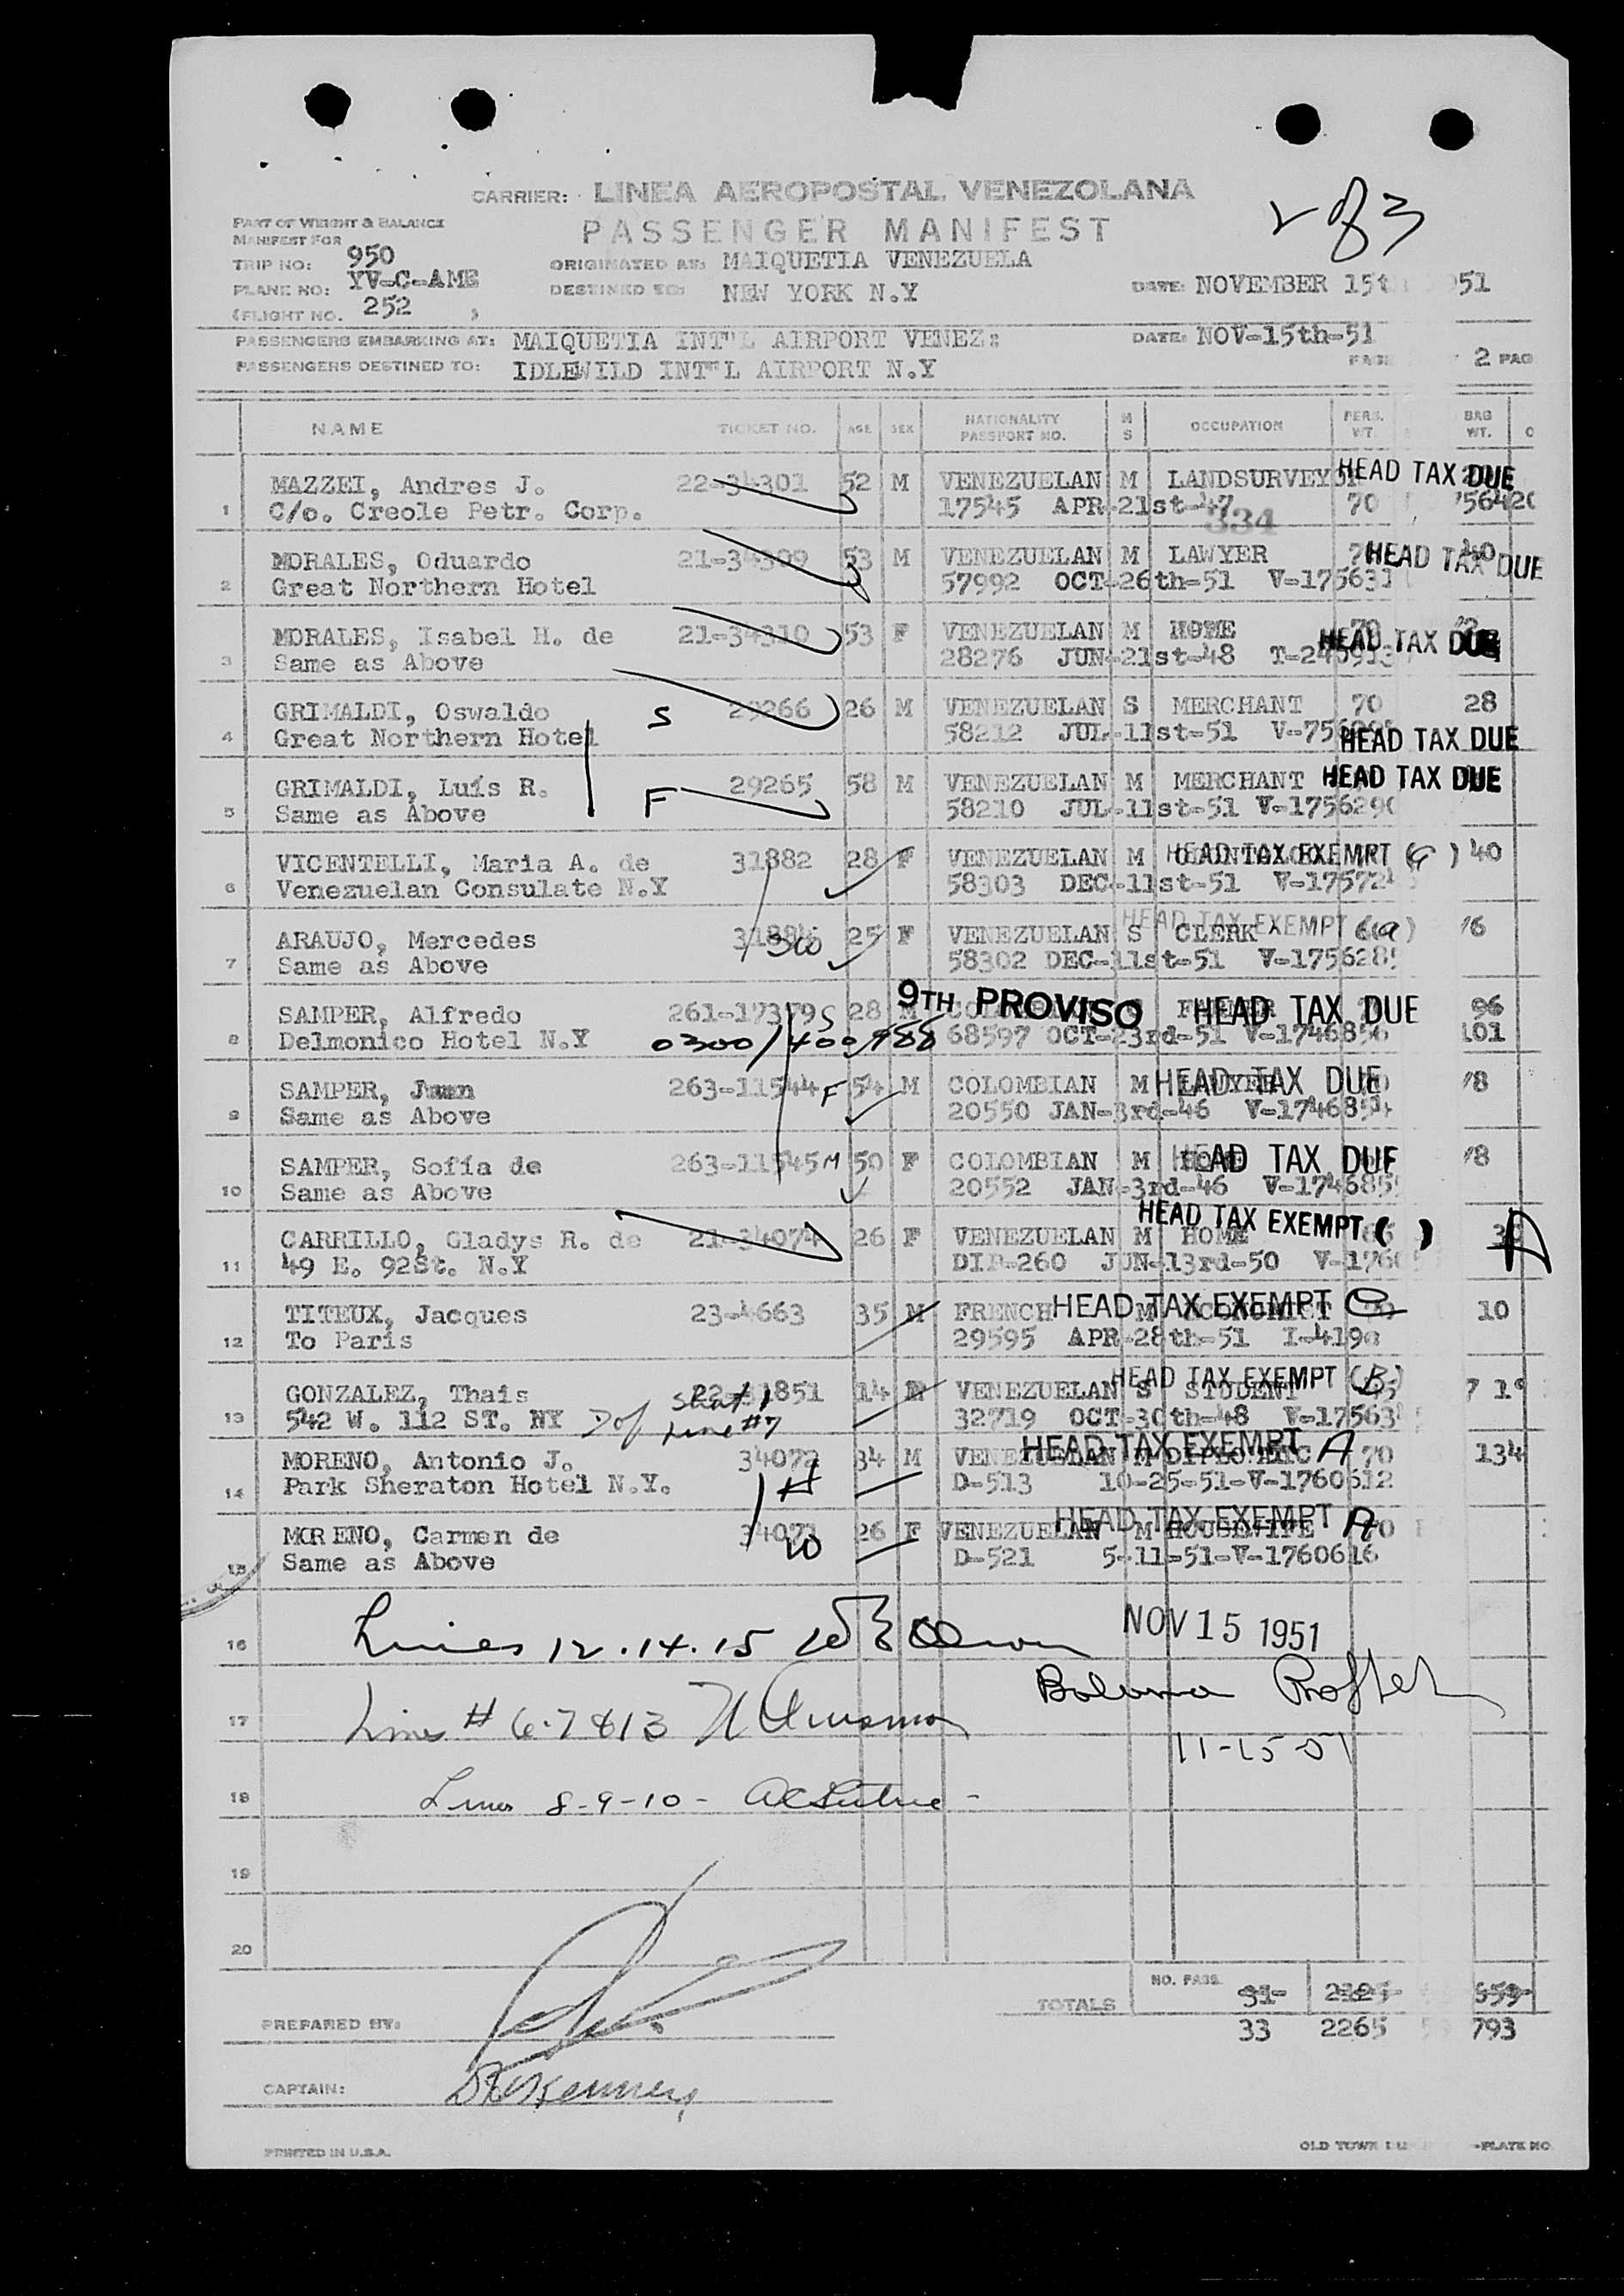 2 of 3
CARRIER: LINEA AEROPOSTAL VENEZOLANA
PART OF WEIGHT & BALANCE
MANIFEST FOR
PASSENGER MANIFEST
TRIP NO: 950
ORIGINATED AT: MAIQUETIA VENEZUELA
PLANE NO: YV-C-AME
DESTINED TO: NEW YORK N.Y
DATE: NOVEMBER 15t 951
(FLIGHT NO. 252 )
PASSENGERS EMBARKING AT: MAIQUETIA INT'L AIRPORT VENEZ:
DATE: NOV-15th-51
PASSENGERS DESTINED TO: IDLEWILD INT'L AIRPORT N.Y
2 PAG
NAME TICKET NO. AGE SEX NATIONALITY PASSPORT NO. M S OCCUPATION PERS. WT. BAG WT.
1 MAZZEI, Andres J. 22-34301 52 M VENEZUELAN M LANDSURVEYOR HEAD TAX DUE
C/o. Creole Petr. Corp. 17545 APR-21st-47 70
334
2 MORALES, Oduardo 21-34309 53 M VENEZUELAN M LAWYER HEAD TAX DUE 40
Great Northern Hotel 57992 OCT-26th-51 V-175631
3 MORALES, Isabel H. de 21-34310 53 F VENEZUELAN M HOME 70 HEAD TAX DUE
Same as Above 28276 JUN-21st-48
4 GRIMALDI, Oswaldo S 29266 26 M VENEZUELAN S MERCHANT 70 28
Great Northern Hotel 58212 JUL-11st-51 HEAD TAX DUE
5 GRIMALDI, Luís R. F 29265 58 M VENEZUELAN M MERCHANT HEAD TAX DUE
Same as Above 58210 JUL-11st-51 V-1756290
6 VICENTELLI, Maria A. de 31882 28 F VENEZUELAN M HEAD TAX EXEMPT ( ) 40
Venezuelan Consulate N.Y 58303 DEC-11st-51 V-17572
7 ARAUJO, Mercedes 25 F VENEZUELAN S CLERK HEAD TAX EXEMPT 6(a)
Same as Above 58302 DEC-11st-51 V-175628
8 SAMPER, Alfredo 261-17379 S 28 M 9TH PROVISO HEAD TAX DUE 96
Delmonico Hotel N.Y 0300/400/988 68597 OCT-23rd-51 V-1746856 101
9 SAMPER, Juan 263-11544 F 54 M COLOMBIAN M LAWYER HEAD TAX DUE
Same as Above 20550 JAN-3rd-46 V-1746854
10 SAMPER, Sofía de 263-11545 M 50 F COLOMBIAN M HOME HEAD TAX DUE
Same as Above 20552 JAN-3rd-46 V-174685
11 CARRILLO, Gladys R. de 21-34074 26 F VENEZUELAN M HOME HEAD TAX EXEMPT ( ) A
49 E. 92St. N.Y DIP-260 JUN-13rd-50 V-1760
12 TITEUX, Jacques 23-4663 35 M FRENCH M ECONOMIST HEAD TAX EXEMPT C 10
To París 29595 APR-28th-51
13 GONZALEZ, Thais 22-31851 14 VENEZUELAN S STUDENT HEAD TAX EXEMPT (B)
542 W. 112 ST. NY D of sheet 1 Line #7 32719 OCT-30th-48 V-17563
14 MORENO, Antonio J. 34072 34 M VENEZUELAN M DIPLOMATIC HEAD TAX EXEMPT A 70 134
Park Sheraton Hotel N.Y. H D-513 10-25-51-V-1760612
15 MORENO, Carmen de 34073 W 26 F VENEZUELAN M HOUSEWIFE HEAD TAX EXEMPT A 70
Same as Above D-521 5-11-51-V-1760616
16 Lines 12.14.15 NOV 15 1951
17 Lines # 6-7 & 13
11-15-51
18 Lines 8-9-10-
19
20
TOTALS NO. PASS. 31 659
33 2265 793
PREPARED BY:
CAPTAIN:
PRINTED IN U.S.A.
OLD TOWN -PLATE NO